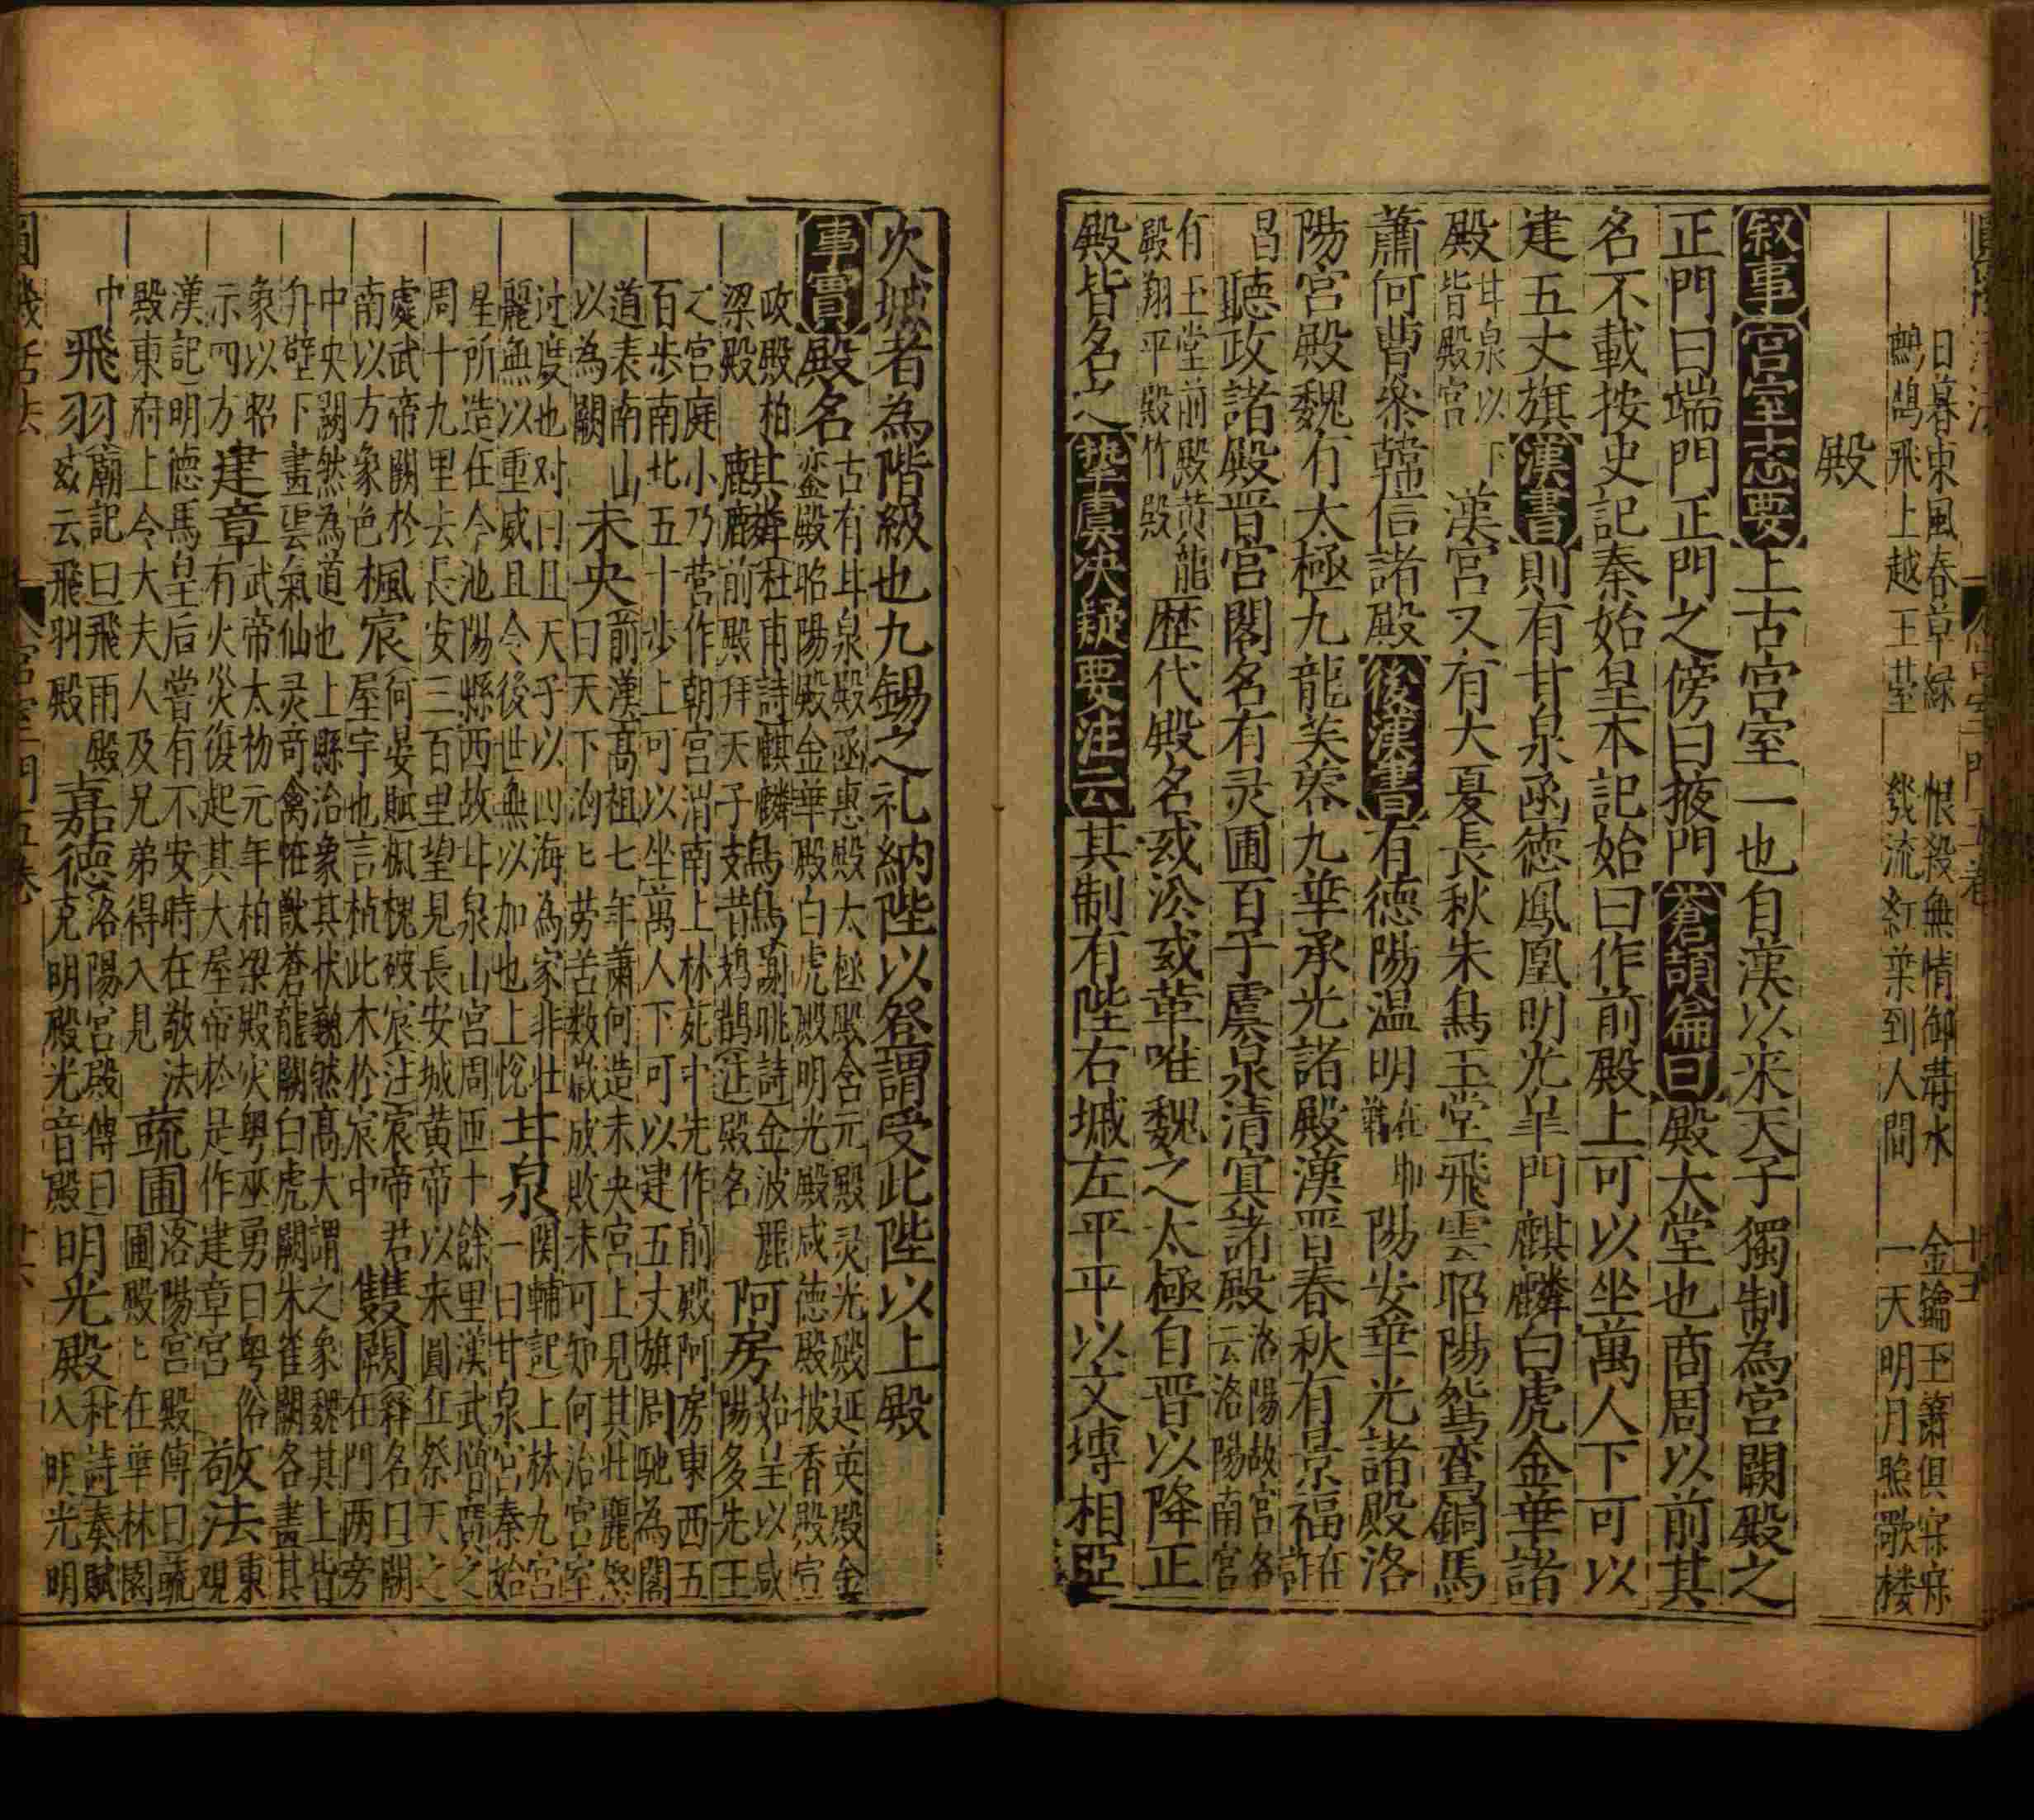 日暮東風春草緑　恨殺無情御溝水　金鑰玉簫俱寂寂
鷓鴣飛上越王䑓　發流紅葉到人間　一天明月照歌楼
殿
叙事 宮室志要 上古宮室一也自漢以来天子獨制為宮闕殿之
正門曰端門正門之傍曰掖門 蒼頡篇曰 殿大堂也商周以前其
名不載按史記秦始皇本記始曰作前殿上可以坐萬人下可以
建五丈旗 漢書 則有甘泉函徳鳳凰明光皐門麒麟白虎金華諸
殿 甘泉以下皆殿宮 漢宮又有大夏長秋朱鳥玉堂飛雲昭陽鴛鸞銅馬
蕭何曹參韓信諸殿 後漢書 有德陽温明 陽安華光諸殿洛
陽宮殿魏有太極九龍芙蓉九華承光諸殿漢晋春秋有景福 在許
昌 聽政諸殿晋宮閣名有灵圃百子虞泉清冥諸殿 洛陽故宮名云洛陽南宮
有玉堂前殿黄龍殿翔平殿竹殿 歴代殿名或㳂或革唯魏之太極自晋以降正
殿皆名之 摯虞决疑要注云 其制有陛右墄左平平以文塼相亞
次墄者為階級也九錫之礼納陛以登謂受此陛以上殿
事實 殿名 古有甘泉殿函惠殿太極殿含元殿灵光殿延英殿金
鑾殿昭陽殿金華殿白虎殿明光殿咸徳殿披香殿宣
政殿柏梁殿 麒麟 杜甫詩麒麟 鳷鵲 謝眺詩金波麗鳷鵲注殿名 阿房 始皇以咸陽多先王
之宮庭小乃营作朝宮渭南上林苑中先作前殿阿房東西五
百步南北五十步上可以坐萬人下可以建五丈旗周馳為閣
道表南山以為闕 未央 前漢髙祖七年蕭何造未央宮上見其壯麗怒
曰天下洶匕劳苦数歳成敗未可知何治宮室
过度也对曰且天子以四海為家非壮
麗無以重威且令後世無以加也上悦 甘泉 関輔記上林九宮
一曰甘泉宮秦始
星所造在今池陽縣西故甘泉山宮周匝十餘里漢武增廣之
周十九里去長安三百里望見長安城黄帝以来圓丘祭天之
處武帝闕於南以方象色 楓宸 何晏賦楓槐破宸注宸帝君
屋宇也言植此木於宸中 雙闕 釋名曰闕在門两旁
中央闕然為道也上縣治象其状巍然髙大謂之象魏其上皆
丹壁下畫雲氣仙灵竒禽怪獸蒼龍闕白虎闕朱雀闕各畫其
象以昭示四方 建章 武帝太初元年柏梁殿灾粤巫勇曰粤俗
有火災復起其大屋帝於是作建章宮 敬法 東觀
漢記明德馬皇后嘗有不安時在敬法
殿東府上令大夫人及兄弟得入見 蔬圃 洛陽宮殿傳曰蔬
圃殿匕在華林園
中 飛羽 廟記曰飛雨殿或云飛羽殿 嘉德 洛陽宮殿傳曰
克明殿光音殿 明光殿 杜詩奏賦入明光明